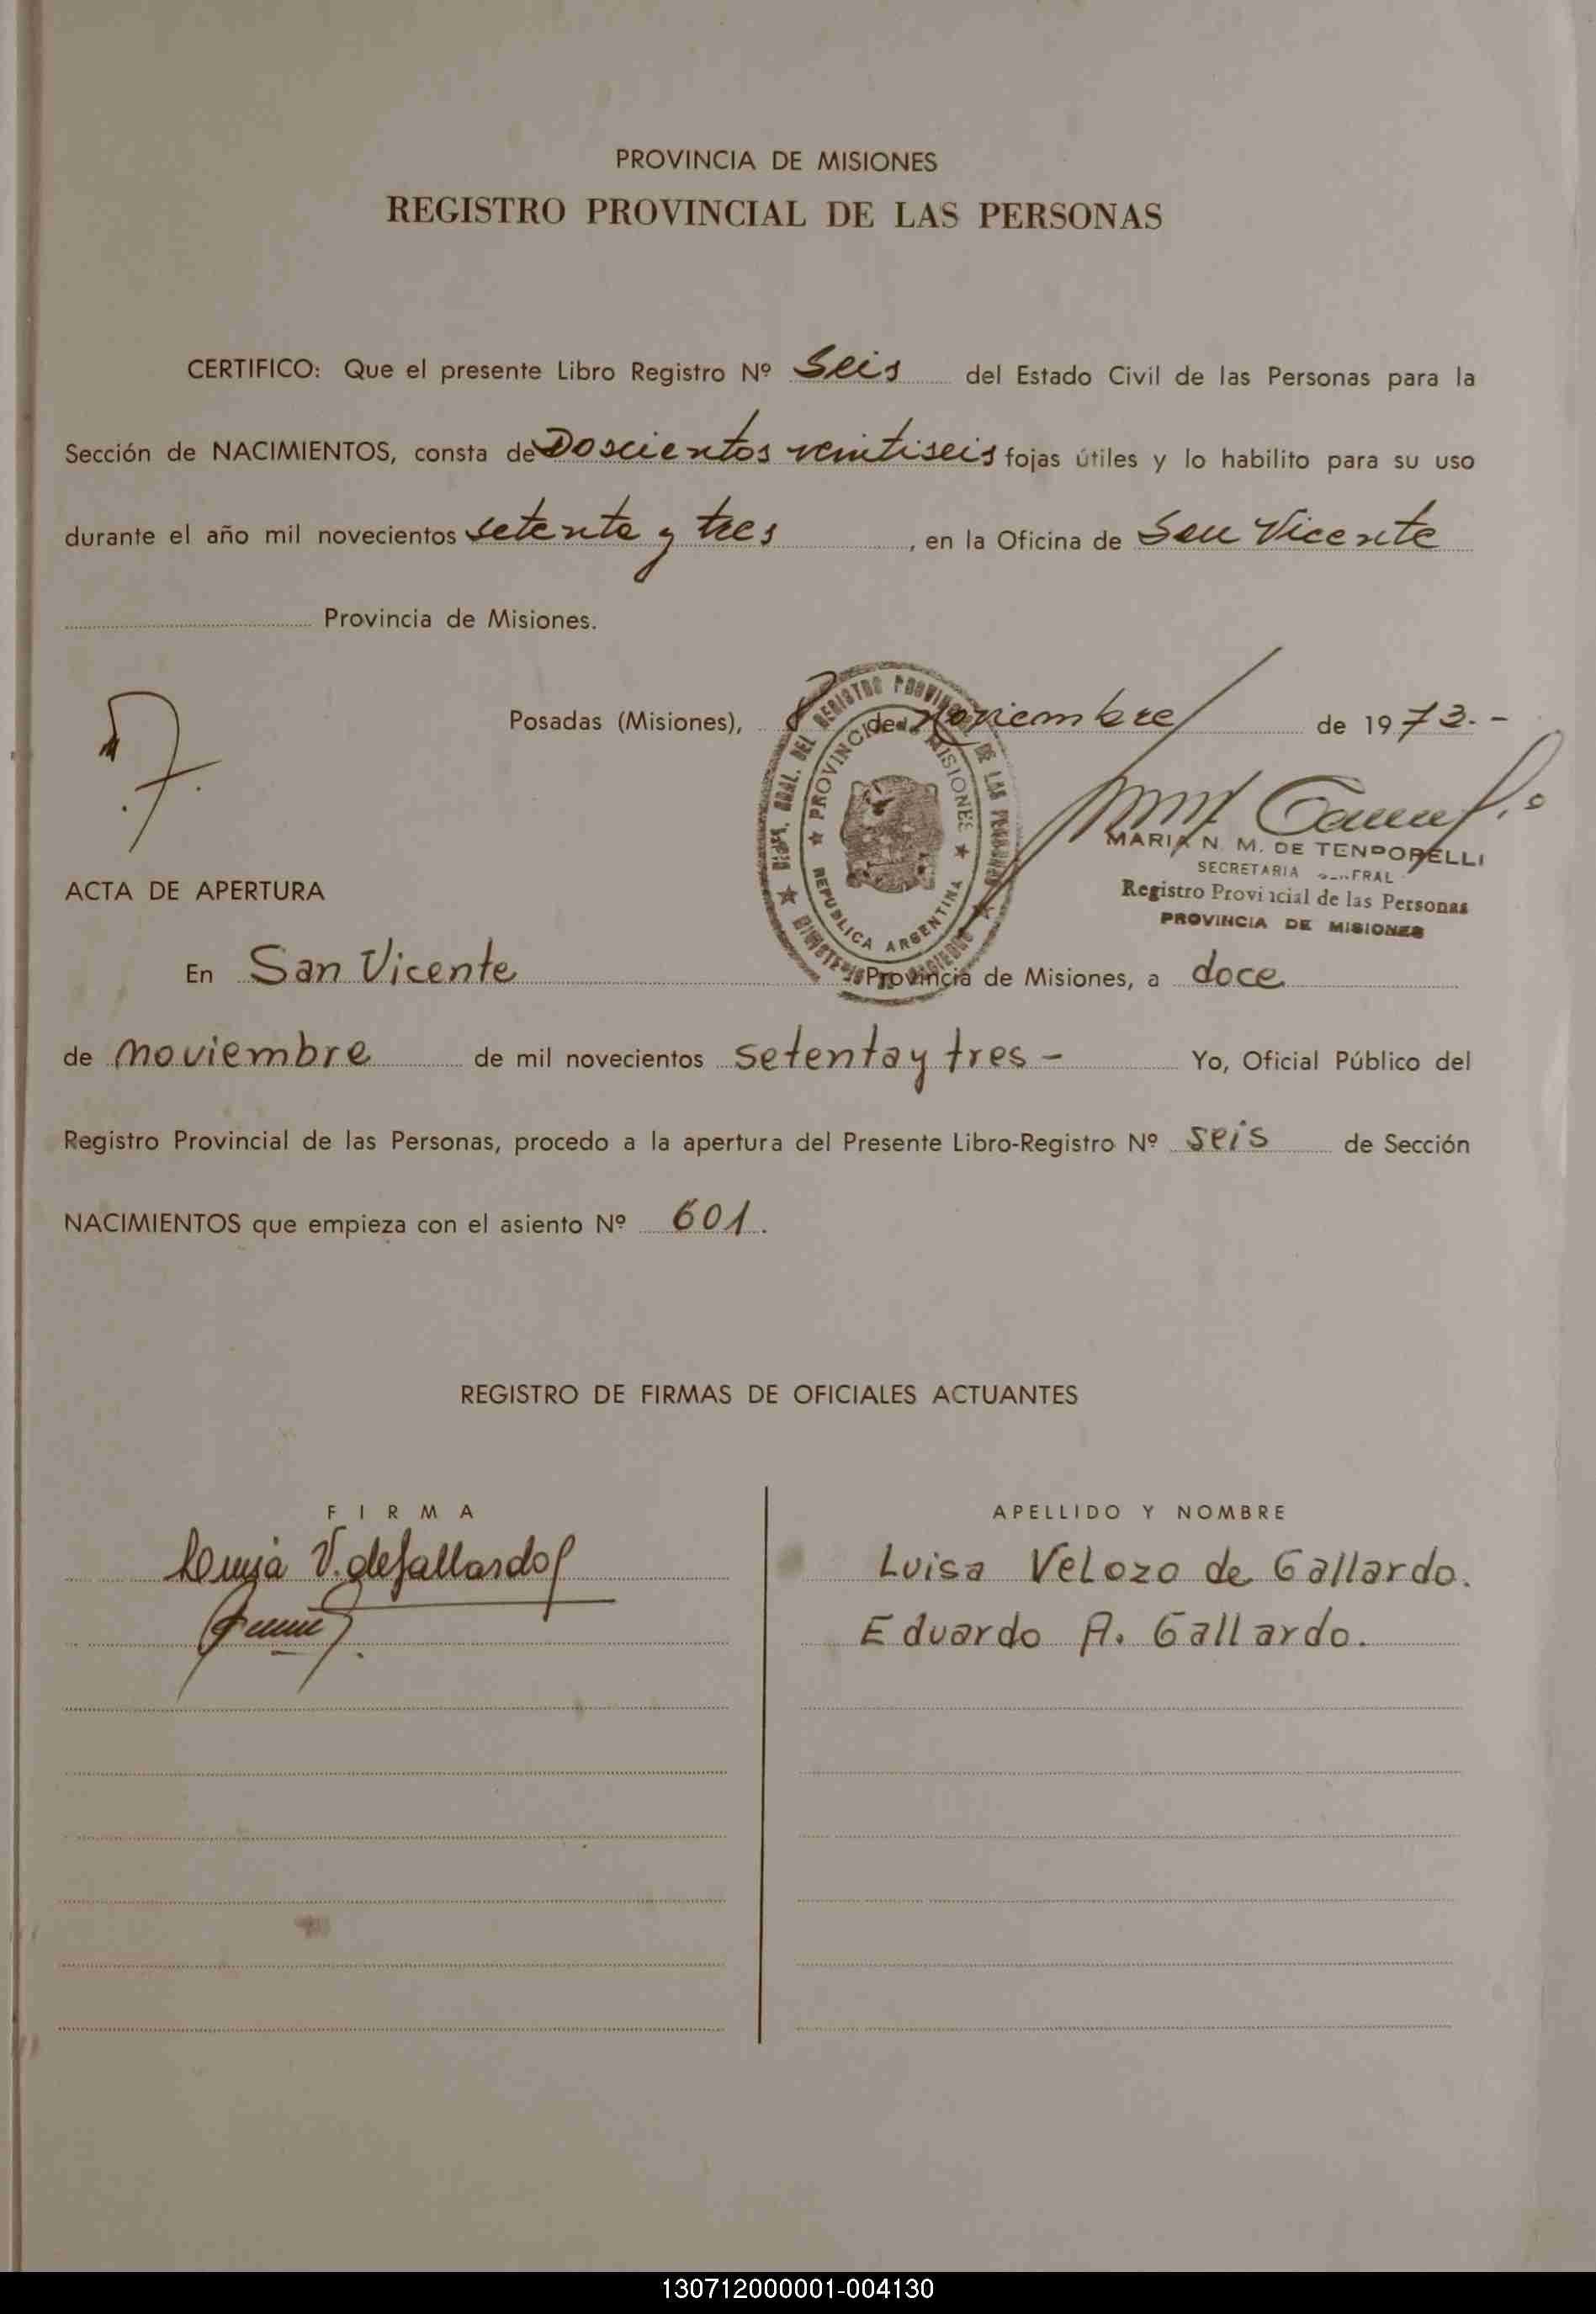 PROVINCIA DE MISIONES
REGISTRO PROVINCIAL DE LAS PERSONAS
CERTIFICO: Que el presente Libro Registro Nº Seis del Estado Civil de las Personas para la
Sección de NACIMIENTOS, consta de Doscientos veintiseis fojas útiles y lo habilito para su uso
durante el año mil novecientos setenta y tres, en la Oficina de San Vicente
Provincia de Misiones.
Posadas (Misiones), 8 de Noviembre de 1973.-
MARIA N. M. DE TENDORELLI
SECRETARIA GENERAL
Registro Provincial de las Personas
PROVINCIA DE MISIONES
PROVINCIA DE MISIONES
REPUBLICA ARGENTINA
ACTA DE APERTURA
En San Vicente Provincia de Misiones, a doce
de noviembre de mil novecientos setenta y tres - Yo, Oficial Público del
Registro Provincial de las Personas, procedo a la apertura del Presente Libro-Registro Nº seis de Sección
NACIMIENTOS que empieza con el asiento Nº 601.
REGISTRO DE FIRMAS DE OFICIALES ACTUANTES
FIRMA APELLIDO Y NOMBRE
Luisa V. de Gallardo Luisa Velozo de Gallardo.
Eduardo A. Gallardo.
130712000001-004130